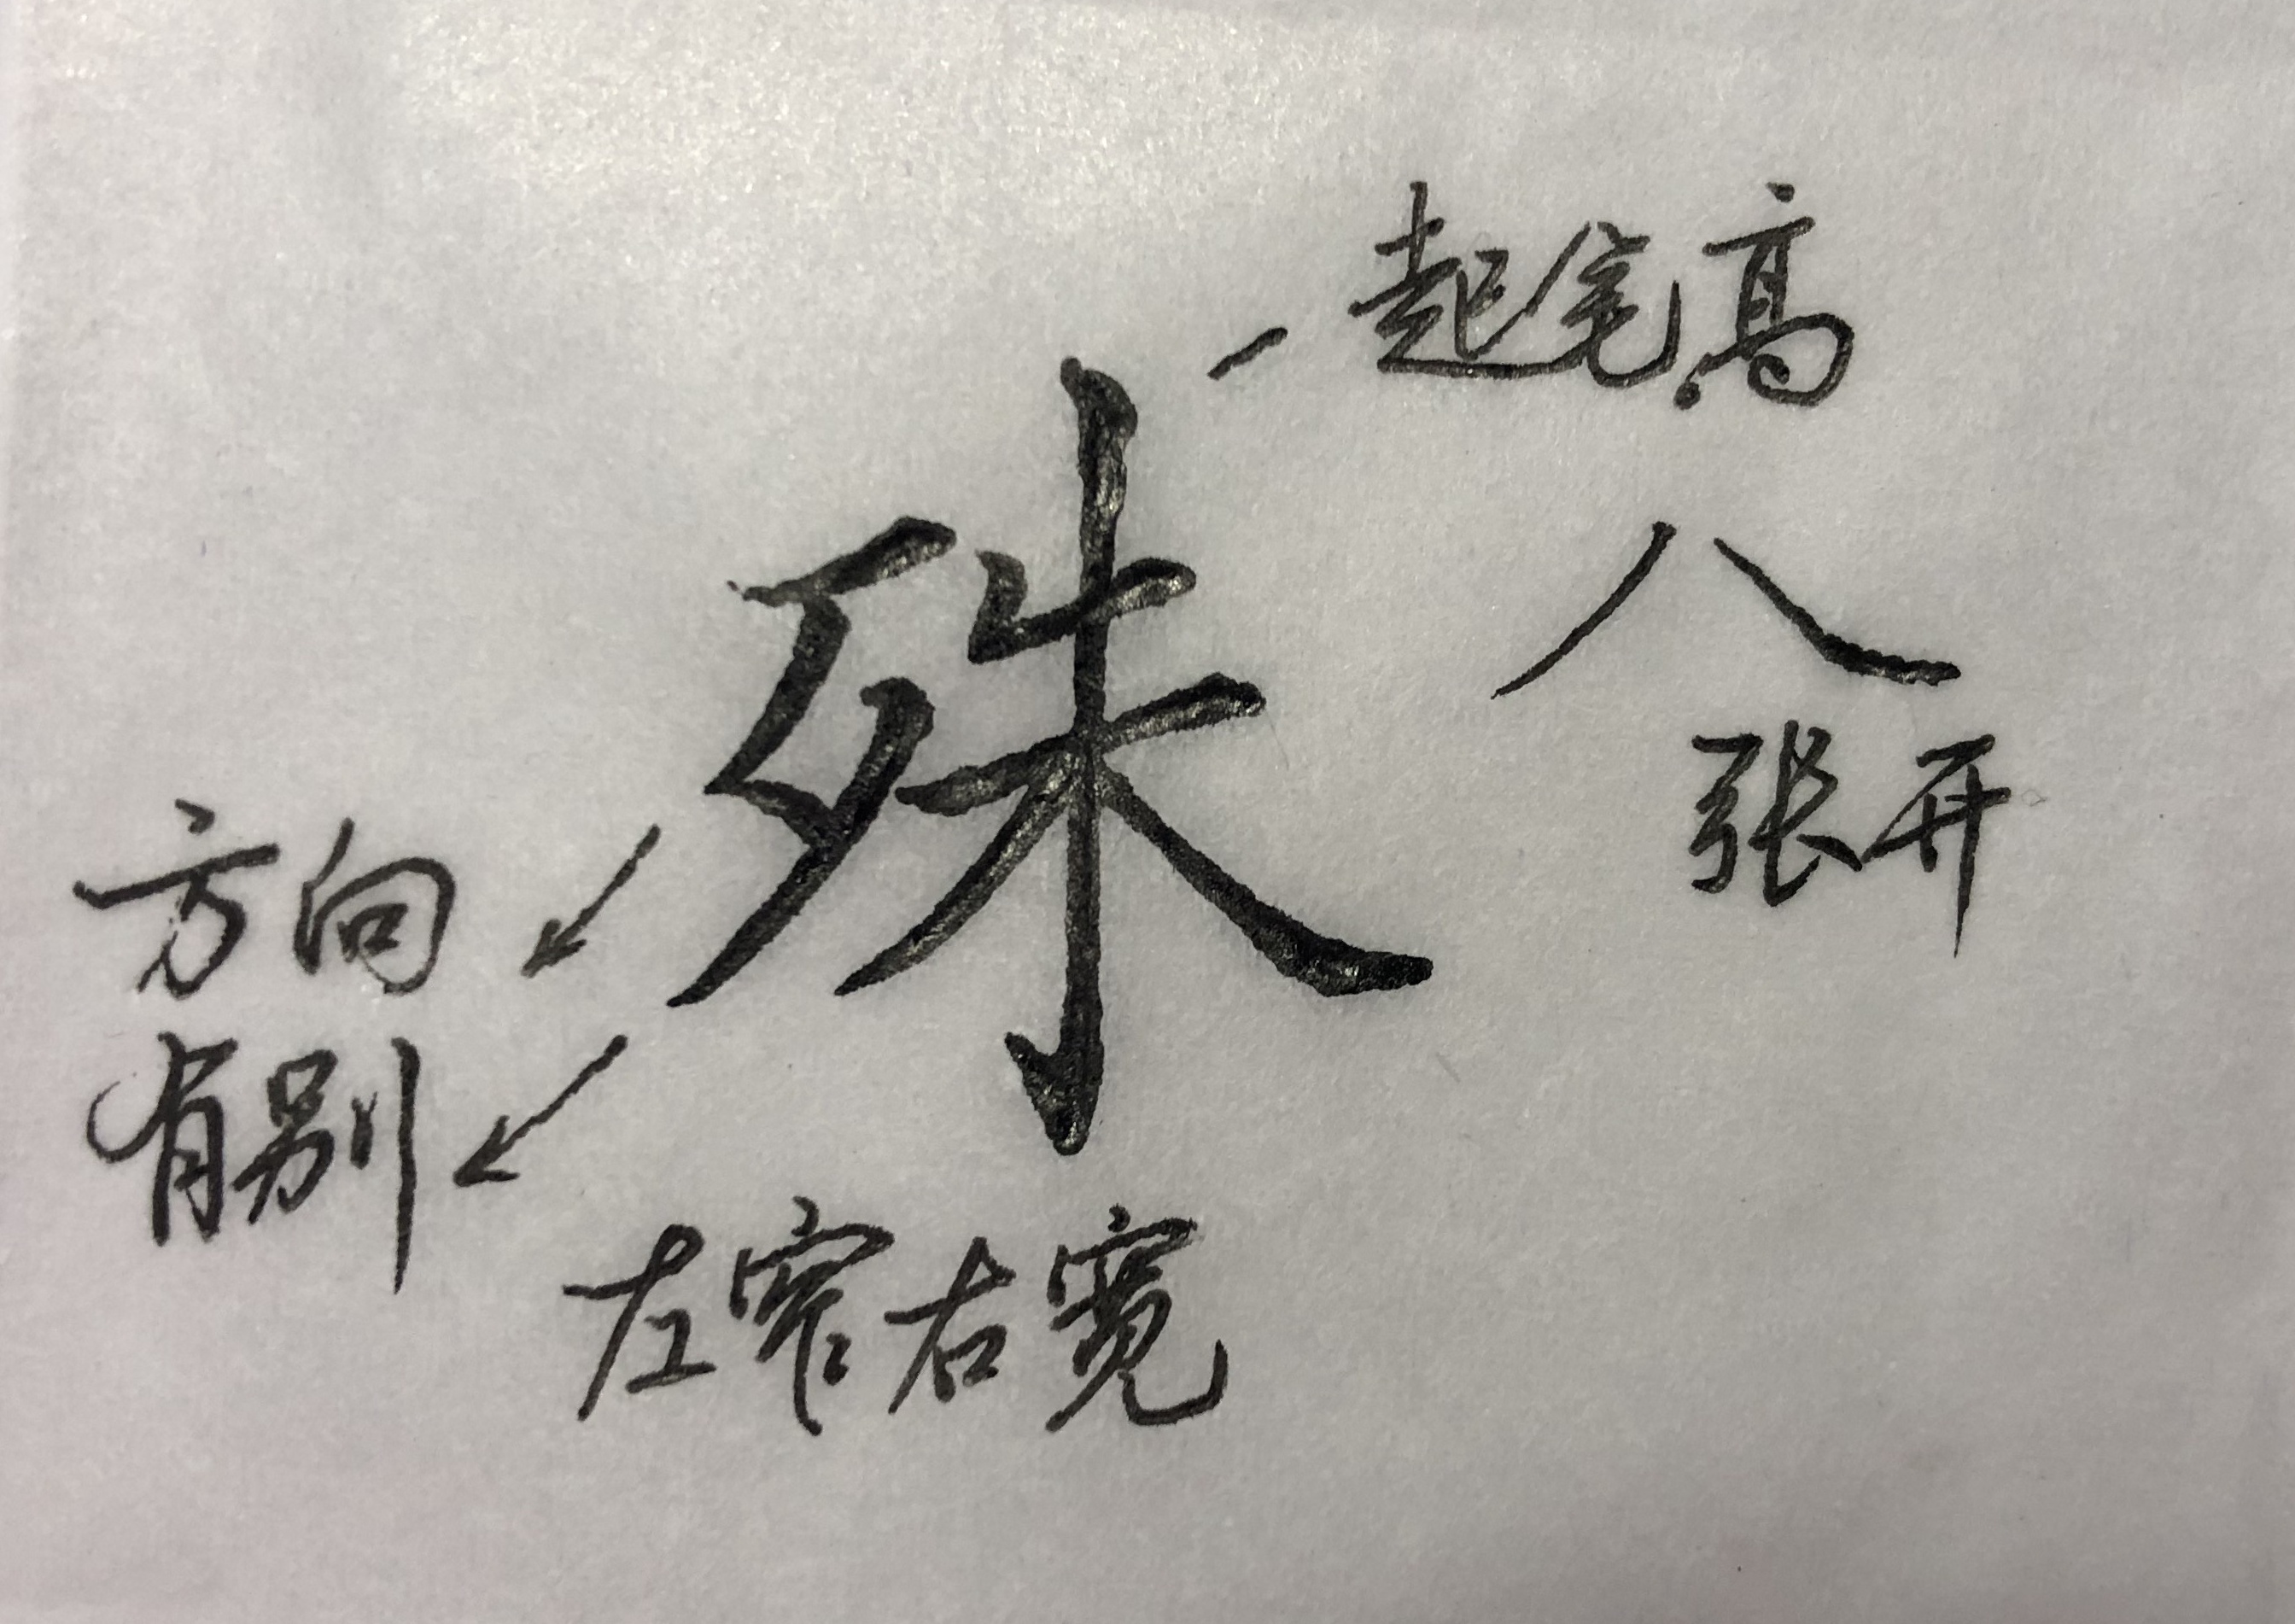 起笔高
殊
八
张开
方向
有别
左窄右宽